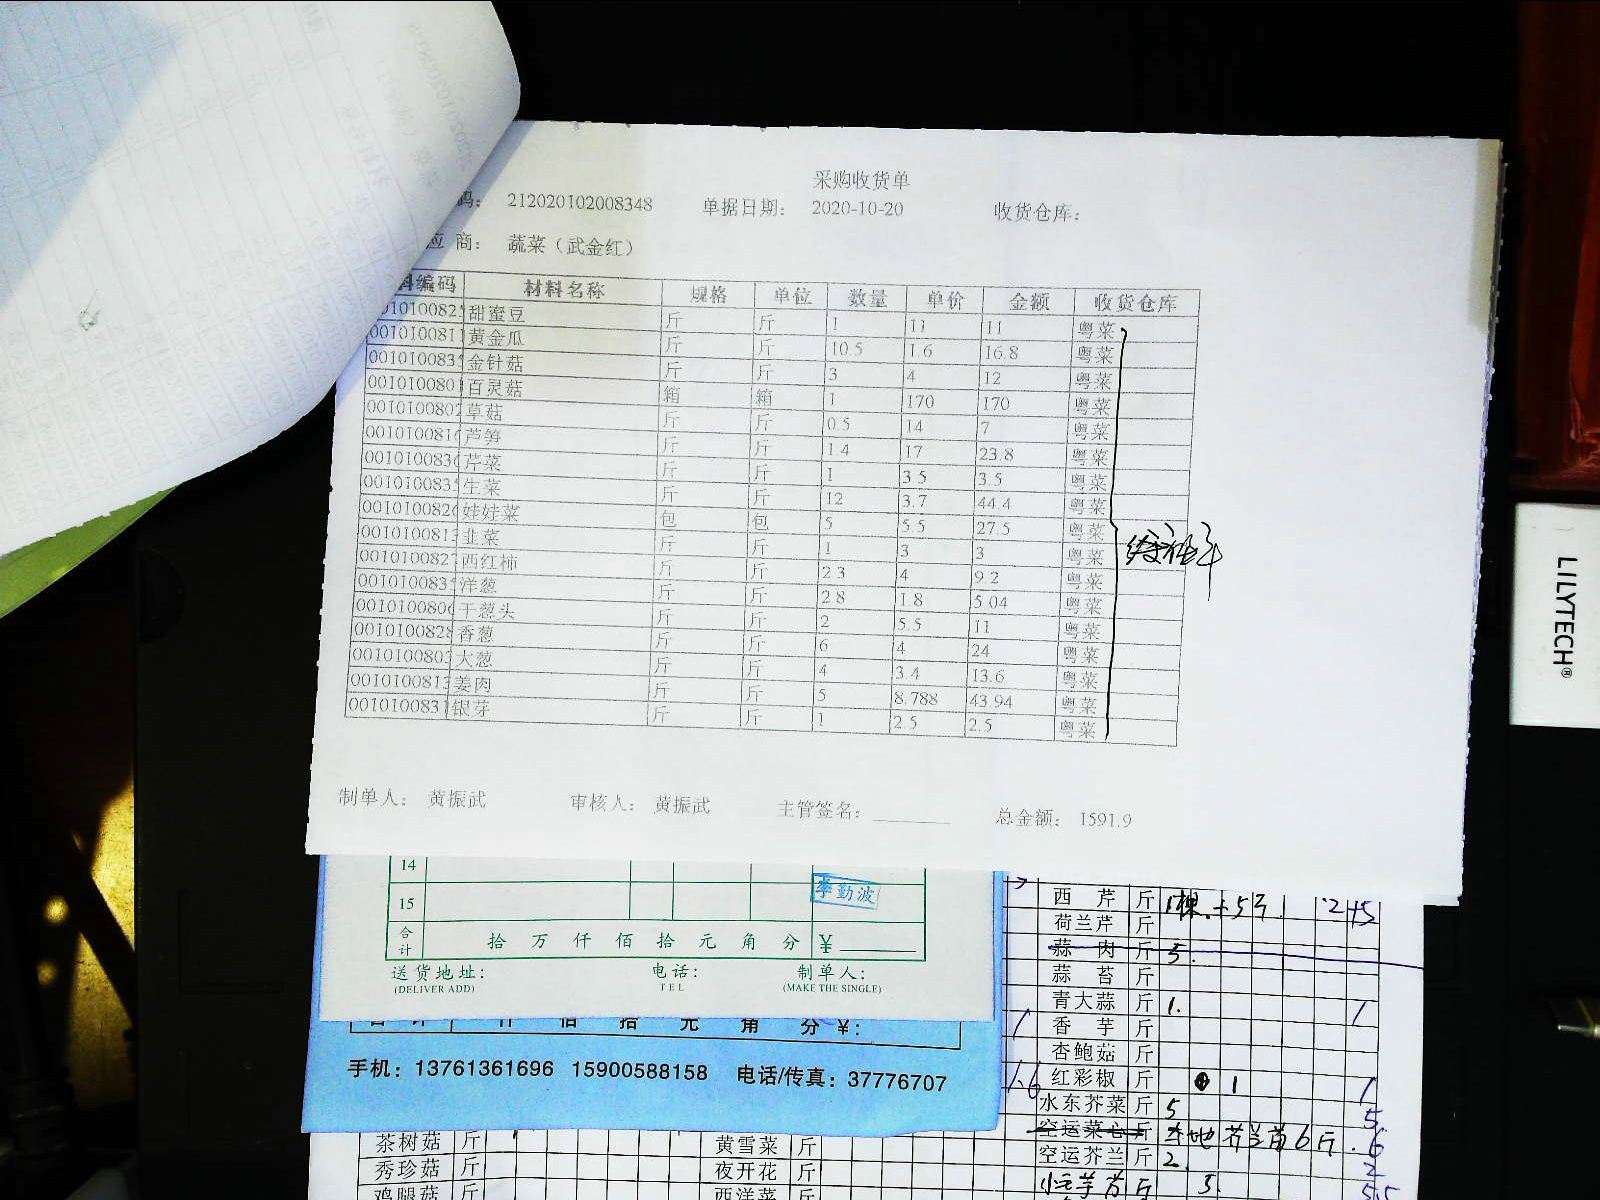 采购收货单
码： 212020102008348 单据日期： 2020-10-20 收货仓库：
应 商： 蔬菜（武金红）
料编码 材料名称 规格 单位 数量 单价 金额 收货仓库
甜蜜豆 斤 斤 1 11 11 粤菜
黄金瓜 斤 斤 10.5 1.6 16.8 粤菜
金针菇 斤 斤 3 4 12 粤菜
百灵菇 箱 箱 1 170 170 粤菜
草菇 斤 斤 0.5 14 7 粤菜
芦笋 斤 斤 1.4 17 23.8 粤菜
芹菜 斤 斤 1 3.5 3.5 粤菜
生菜 斤 斤 12 3.7 44.4 粤菜
娃娃菜 包 包 5 5.5 27.5 粤菜
韭菜 斤 斤 1 3 3 粤菜
西红柿 斤 斤 2.3 4 9.2 粤菜
洋葱 斤 斤 2.8 1.8 5.04 粤菜
干葱头 斤 斤 2 5.5 11 粤菜
香葱 斤 斤 6 4 24 粤菜
大葱 斤 斤 4 3.4 13.6 粤菜
姜肉 斤 斤 5 8.788 43.94 粤菜
银芽 斤 斤 1 2.5 2.5 粤菜
制单人： 黄振武 审核人： 黄振武 主管签名： 总金额： 1591.9
LILYTECH®
14
15 李勤波
合计 拾 万 仟 佰 拾 元 角 分 ¥
送货地址： 电话： 制单人：
(DELIVER ADD) TEL (MAKE THE SINGLE)
拾 元 角 分 ¥：
手机：13761361696 15900588158 电话/传真：37776707
西 芹 斤
荷兰芹 斤
蒜 肉 斤 5.
蒜 苔 斤
青大蒜 斤 1. 1
香 芋 斤
杏鲍菇 斤
红彩椒 斤 1 1
水东芥菜 斤 5 5
空运菜心 斤 6斤. 6
空运芥兰 斤 2. 2
茶树菇 斤 黄雪菜 斤
秀珍菇 斤 夜开花 斤
鸡腿菇 斤 西洋菜 斤